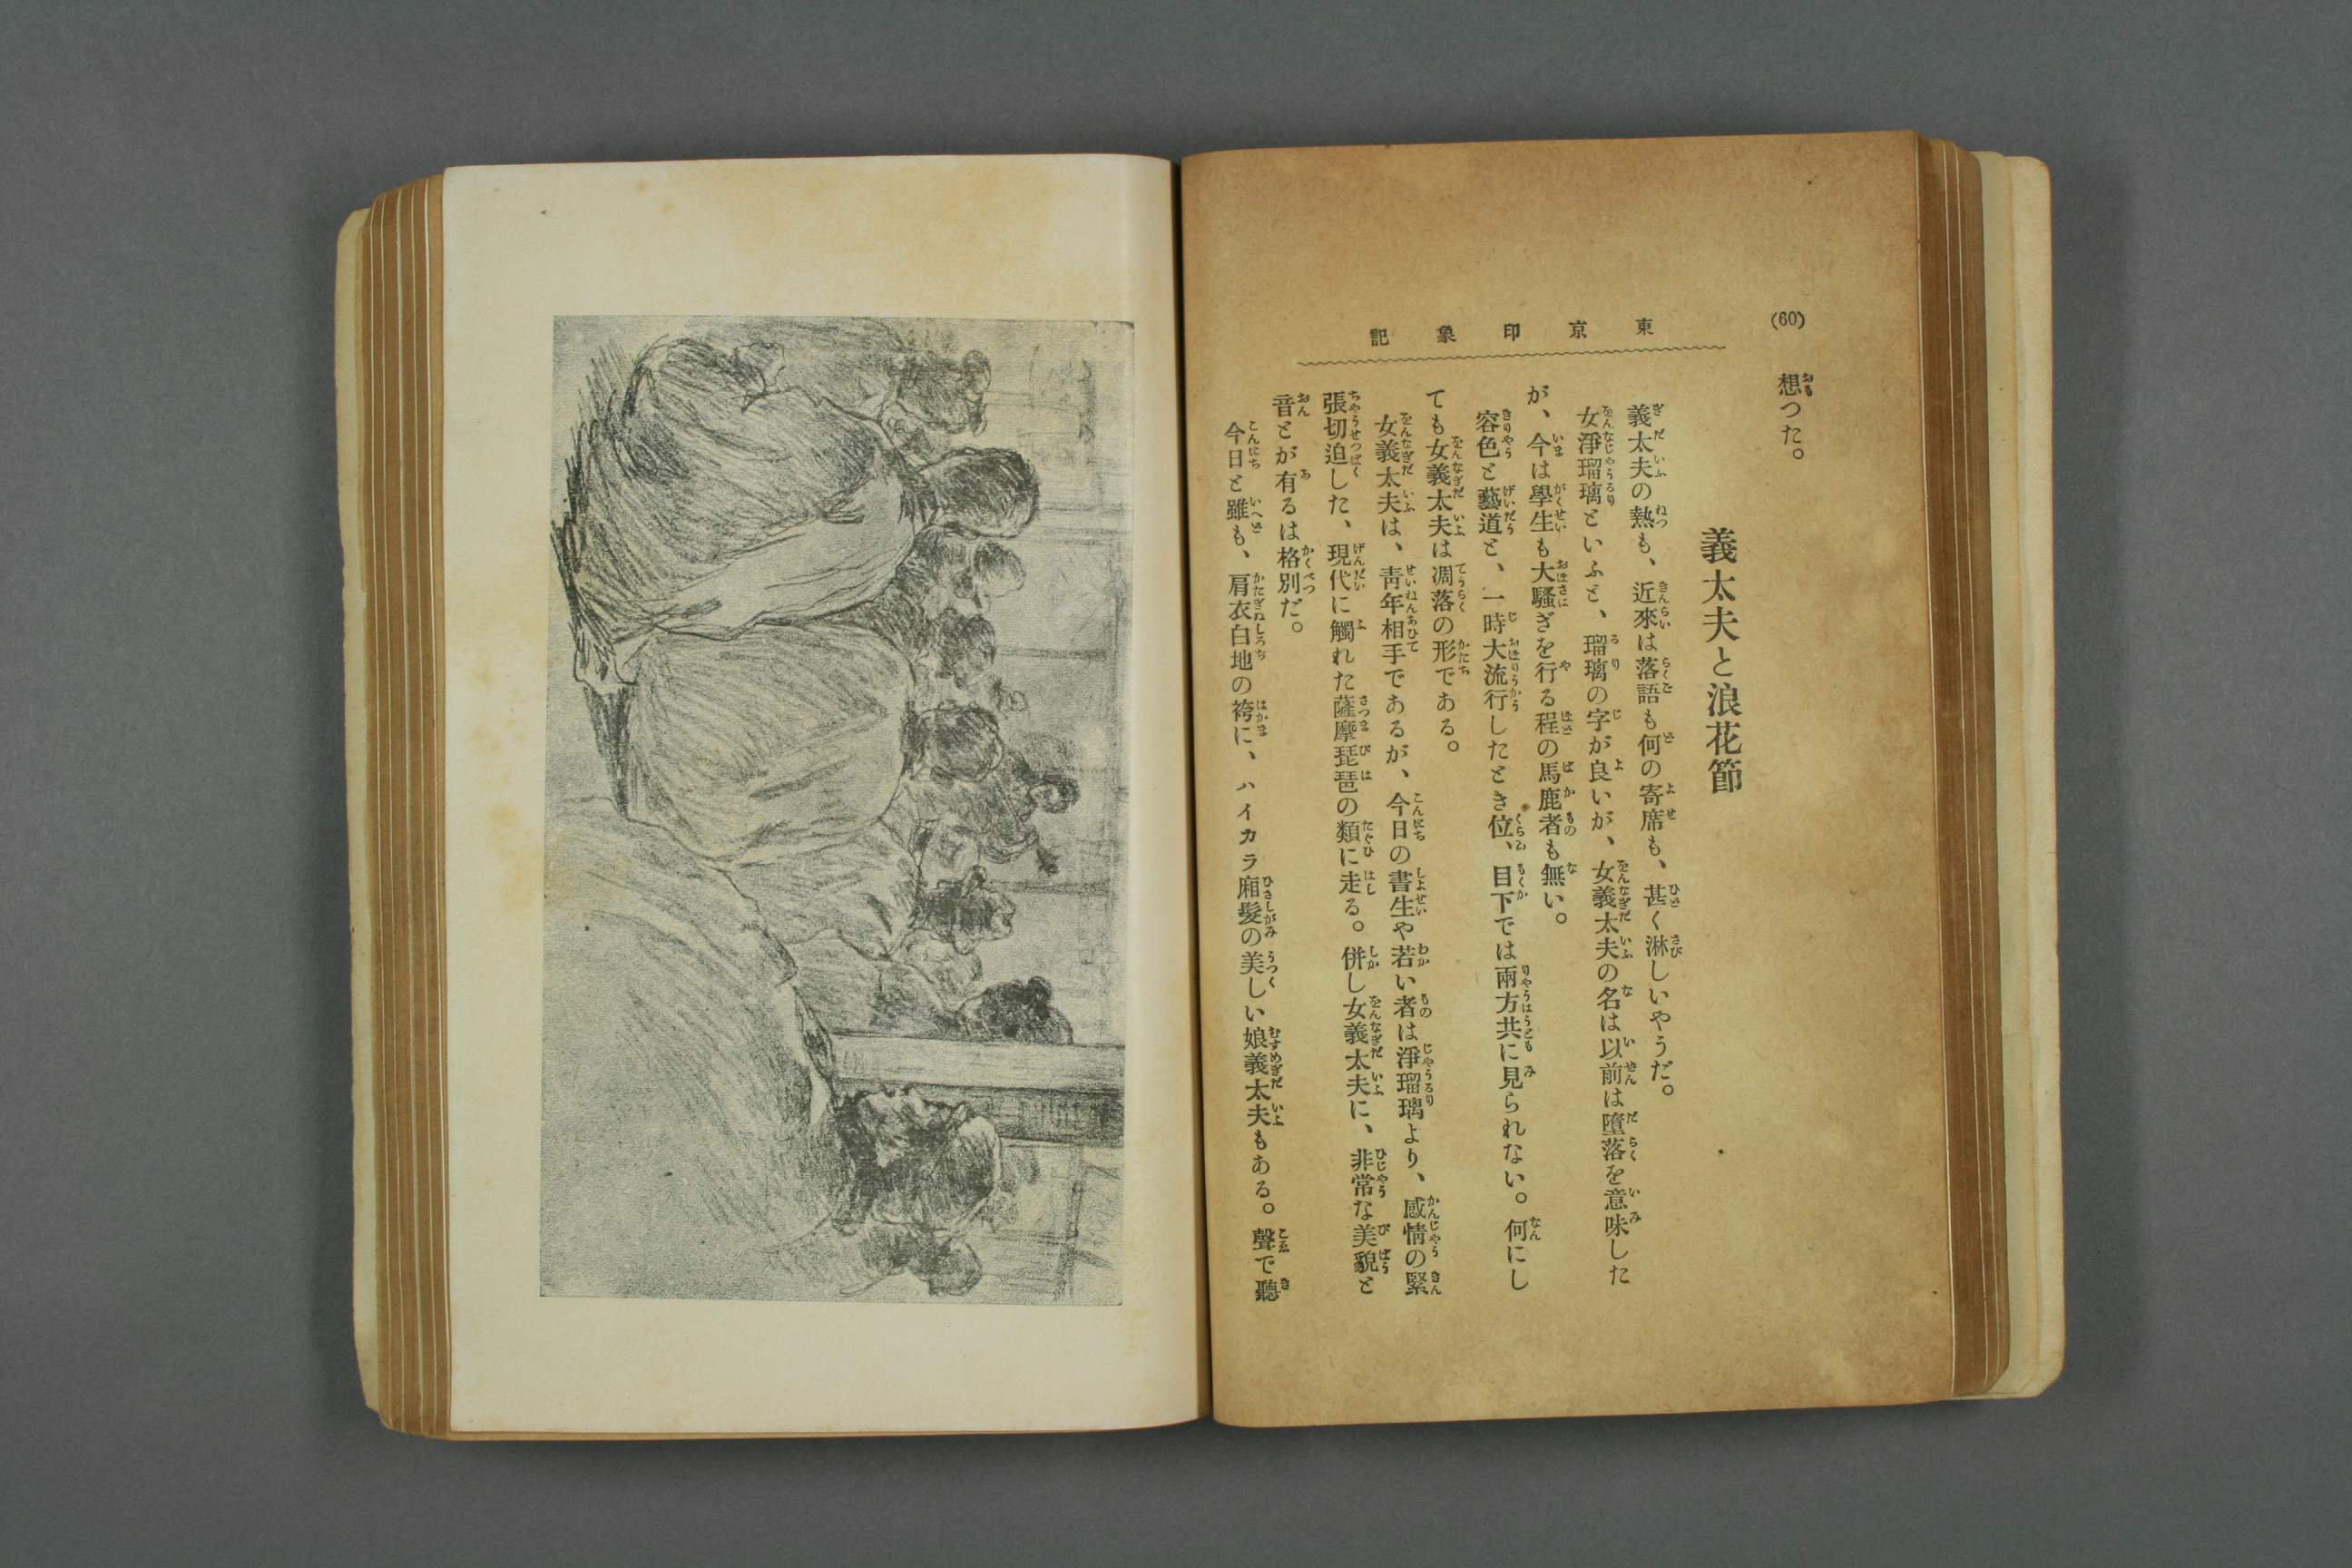 (60)
東京印象記
想つた。
義太夫と浪花節
義太夫の熱も、近來は落語も何の寄席も、甚く淋しいやうだ。
女淨瑠璃といふと、瑠璃の字が良いが、女義太夫の名は以前は墮落を意味した
が、今は學生も大騷ぎを行る程の馬鹿者も無い。
容色と藝道と、一時大流行したとき位、目下では兩方共に見られない。何にし
ても女義太夫は凋落の形である。
女義太夫は、靑年相手であるが、今日の書生や若い者は淨瑠璃より、感情の緊
張切迫した、現代に觸れた薩摩琵琶の類に走る。併し女義太夫に、非常な美貌と
音とが有るは格別だ。
今日と雖も、肩衣白地の袴に、ハイカラ廂髮の美しい娘義太夫もある。聲で聽